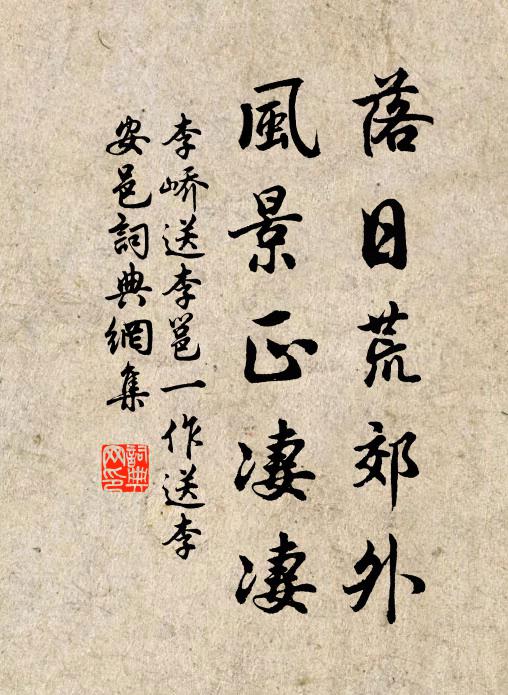 落日荒郊外
風景正淒淒
李嶠送李邕一作送李
安邑詞典網集
詞典網印